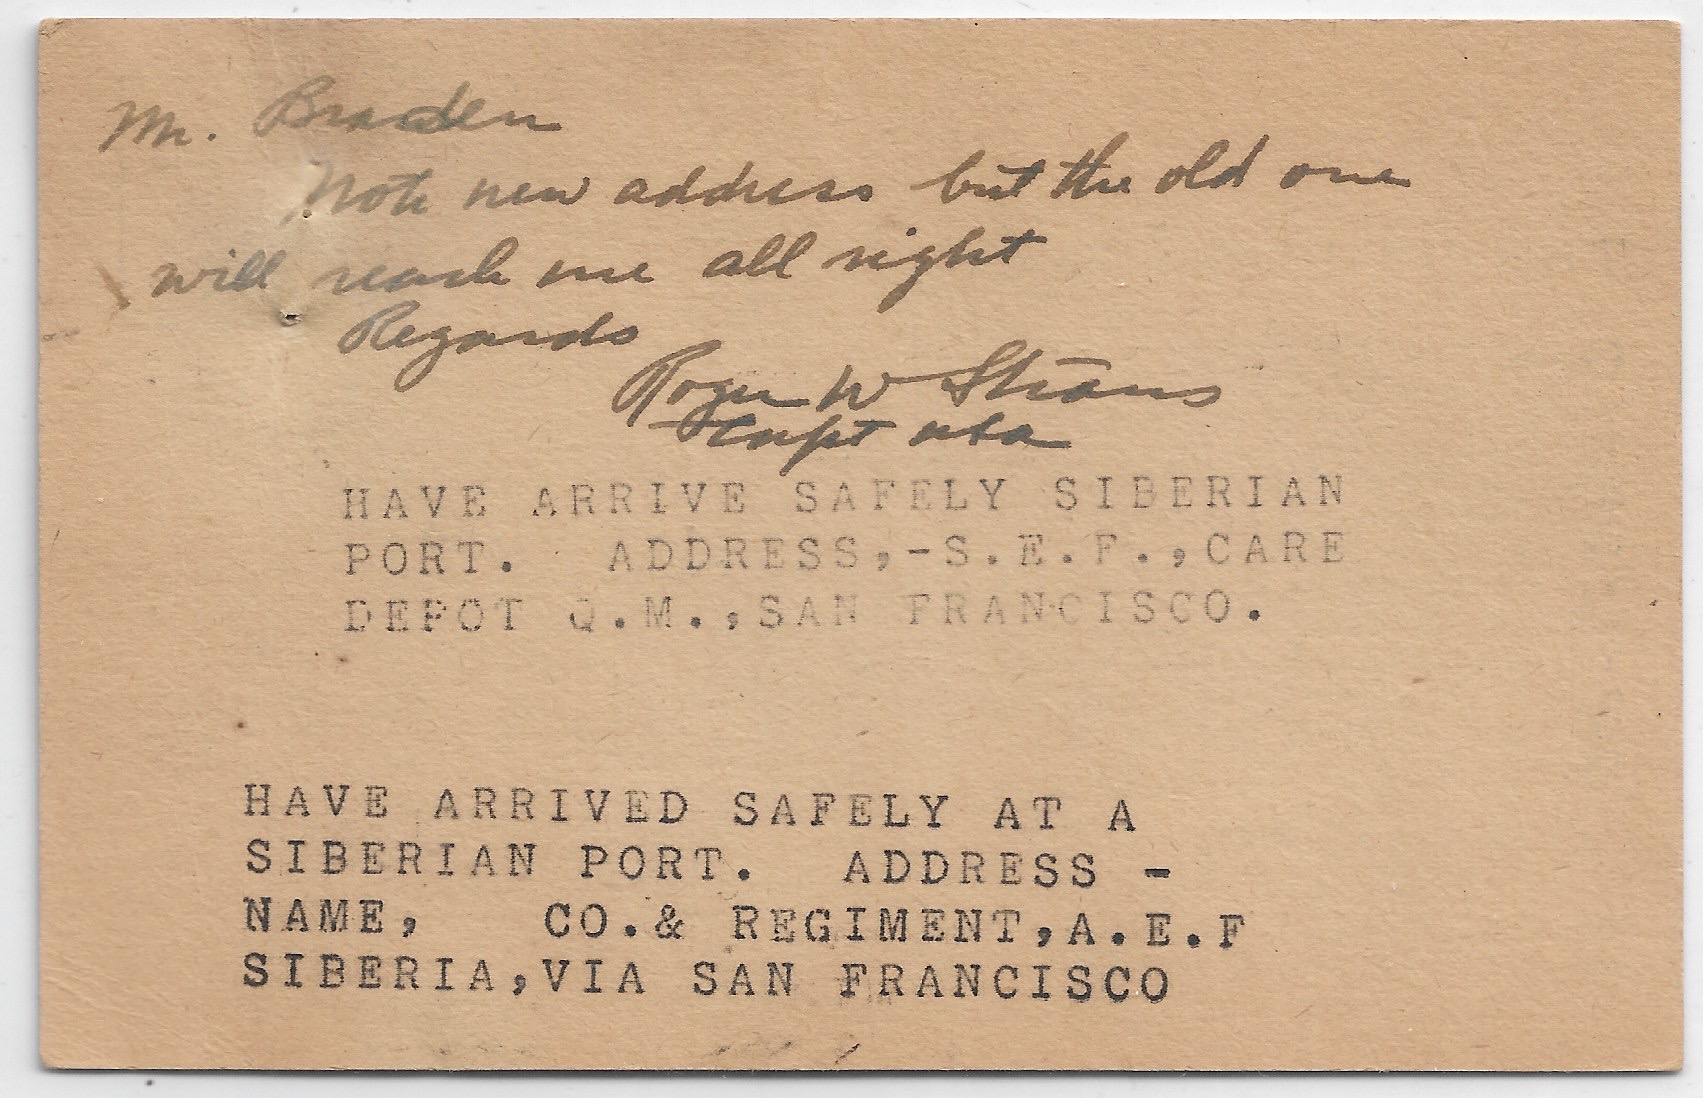 Mr. Braden
Note new address but the old one
will reach me all right
Regards
Roger W Straus
Capt USA
HAVE ARRIVE SAFELY SIBERIAN
PORT. ADDRESS,-S.E.F.,CARE
DEPOT Q.M.,SAN FRANCISCO.
HAVE ARRIVED SAFELY AT A
SIBERIAN PORT. ADDRESS -
NAME, CO.& REGIMENT,A.E.F
SIBERIA,VIA SAN FRANCISCO